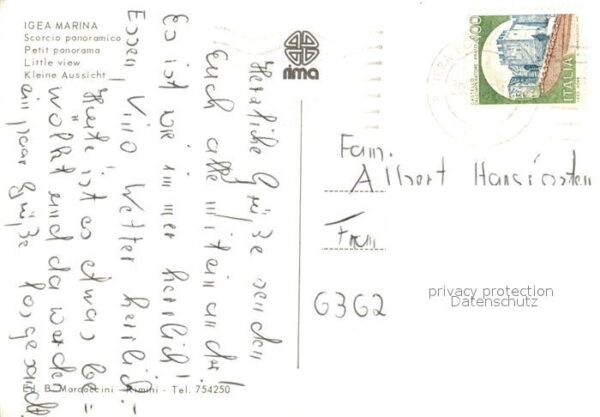 IGEA MARINA
Scorcio panoramico
Petit panorama
Little view
Kleine Aussicht
rima
400
ITALIA
Herzliche Grüße senden
Euch alle miteinander!
Es ist wie immer herrlich!
Essen, Vino Wetter herrlich.
Heute ist es etwas be=
wölkt und da werden
ein paar Grüße losgesandt.
Fam.
Albert
6362
privacy protection
Datenschutz
Ed. B. Marcaccini - Rimini - Tel. 754250